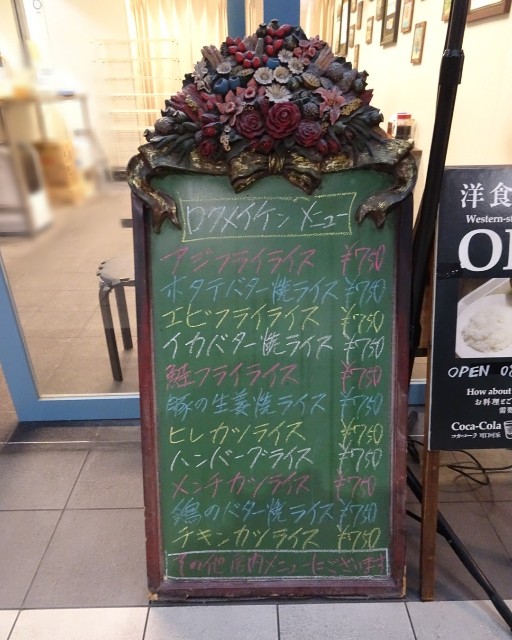 ロクメイケン メニュー
アジフライライス ¥750
ホタテバター焼ライス ¥750
エビフライライス ¥750
イカバター焼ライス ¥750
鮭フライライス ¥750
豚の生姜焼ライス ¥750
ヒレカツライス ¥750
ハンバーグライス ¥750
メンチカツライス ¥750
鶏のバター焼ライス ¥750
チキンカツライス ¥750
その他店内メニューにございます
洋食
Western-st
OPEN 08
How about
お料理とご
Coca-Cola
コカ・コーラ 可口可乐